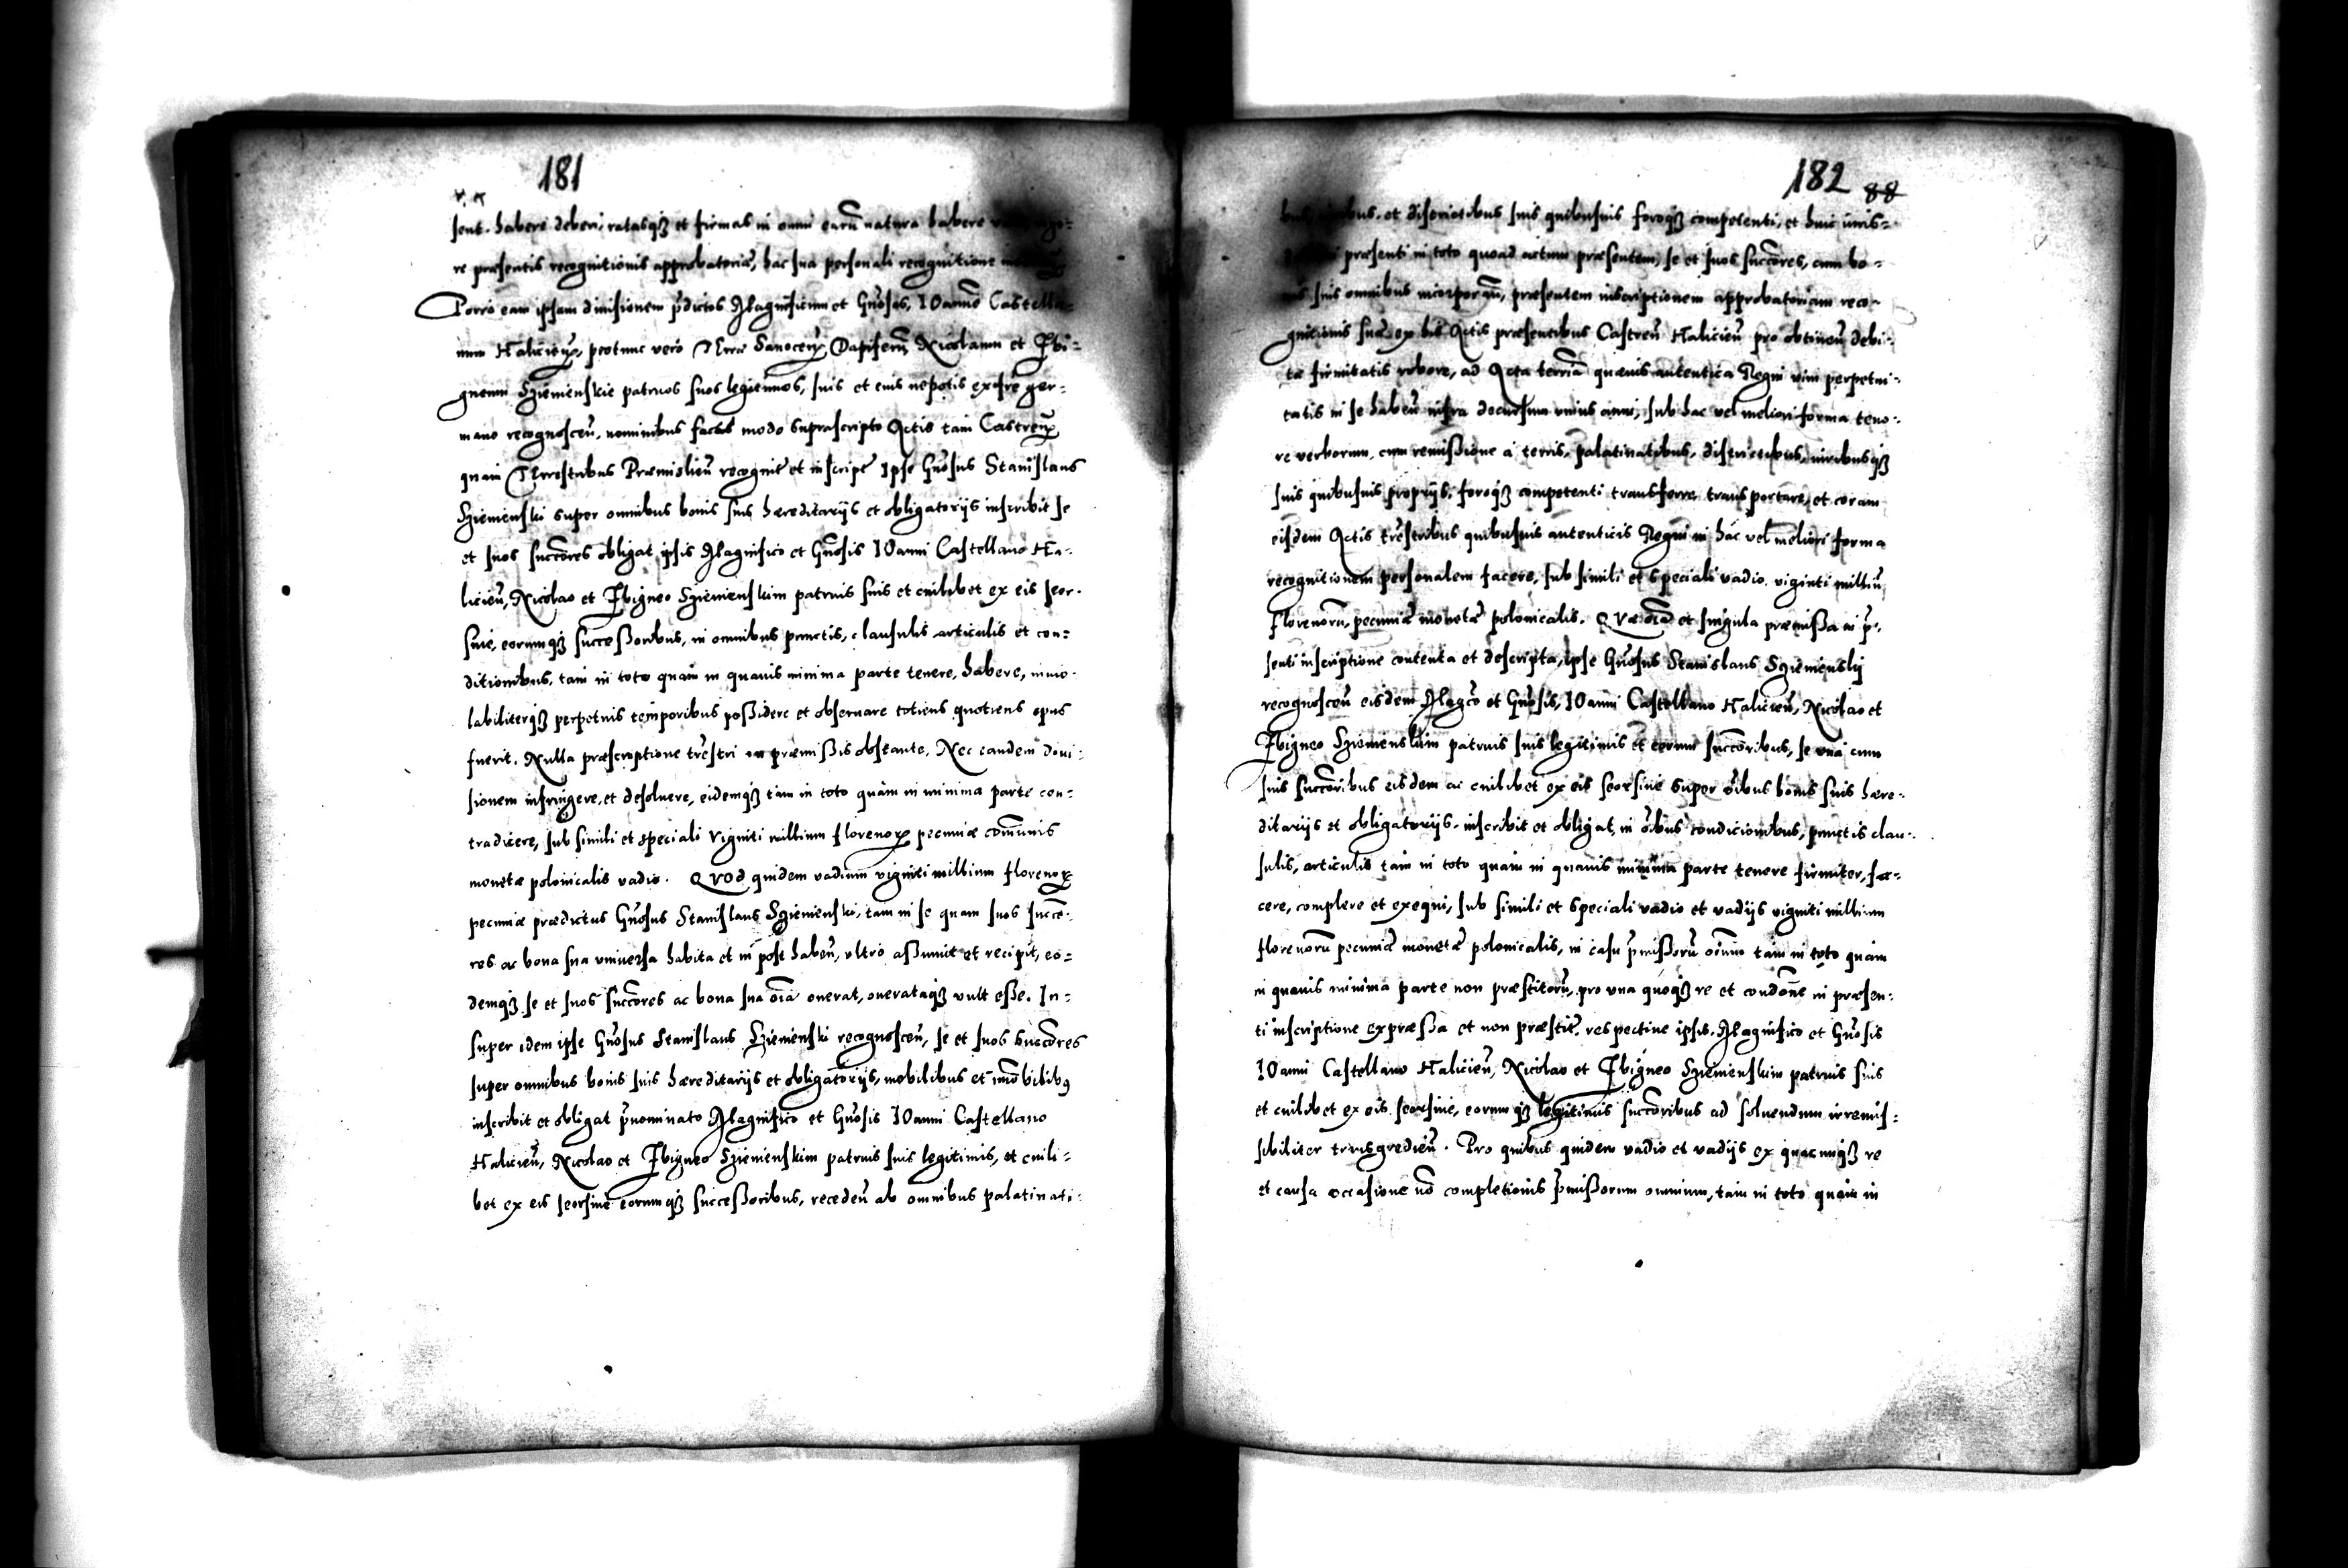 181
sent. habere deberi, ratasqꝫ et firmas in omni earū natura habere
re præsentis recognitionis approbatoriæ, hac sua personali recognitione
Porro eam ipsam diuisionem p̃dictos Magnificum et Gn̄osos, IOannē Castella=
num Haliciēn̄, protunc vero Terræ Sanocen̄ Dapiferū Nicolaum et Zbi=
gneum Sziemienskie patruos suos legitimos, suis et eius nepotis ex fr̄e ger=
mano recognoscēn̄, nominibus factas modo suprascripto Actis tam Castren̄
quam Terrestribus Præmislien̄ recognit̃ et inscript̃ Ipse Gn̄osus Stanislaus
Sziemienski super omnibus bonis suis hæreditarijs et obligatorijs inscribit se
et suos succōres obligat ipsis Magnifico et Gn̄osis IOanni Castellano Ha=
licien̄, Nicolao et Zbigneo Sziemienskim patruis suis et cuilibet ex eis seor=
siue, eorumqꝫ successoribus, in omnibus punctis, clausulis articulis et con=
ditionibus, tam in toto quam in quauis minima parte tenere, habere, inuio=
labiliterqꝫ perpetuis temporibus possidere et obseruare totiens quotiens opus
fuerit. Nulla præscriptione tr̄estri in præmissis obstante. Nec eandem diui=
sionem infringere, et desoluere, eidemqꝫ tam in toto quam in minima parte con=
tradicere, sub simili et speciali Viginti millium florenoꝝ pecuniæ com̄unis
monetæ polonicalis vadio. QVOd quidem vadium viginti millium florenoꝝ
pecuniæ prædictus Gn̄osus Stanislaus Sziemienski, tam in se quam suos succō=
res ac bona sua vniuersa habita et in post haben̄, vltro assumit et recipit, eo=
demqꝫ se et suos succōres ac bona sua oīa onerat, onerataqꝫ vult esse. In=
super idem ipse Gn̄osus Stanislaus Sziemienski recognoscen̄, se et suos succōres
super omnibus bonis suis hæreditarijs et obligatorijs, mobilibus et im̄obilibꝰ
inscribit et obligat p̃nominato Magnifico et Gn̄osis IOanni Castellano
Halicien̄, Nicolao et Zbigneo Sziemienskim patruis suis legitimis, et cuili=
bet ex eis seorsiue eorumqꝫ successoribus, receden̄ ab omnibus palatinati=
182 88
et districtibus suis quibusuis foroqꝫ competenti, et huic iuris=
præsenti in toto quoad actum præsentem, se et suos succōres, cum bo=
suis omnibus incorporan̄, præsentem inscriptionem approbatoriam reco=
gnitionis suæ ex his Actis præsentibus Castren̄ Halicien̄ pro obtinen̄ debi=
tæ firmitatis robore, ad Acta terr̄ia quæuis autentica Regni vim perpetui=
tatis in se haben̄ infra decursum vnius anni, sub hac vel meliori forma teno=
re verborum, cum remissione a terris, palatinatibus, districtibus, iuribusqꝫ
suis quibusuis proprijs, foroqꝫ competenti transferre transportare, et coram
eisdem Actis tr̄estribus quibusuis autenticis Regni in hac vel meliori forma
recognitionem personalem facere, sub simili et speciali vadio. viginti milliū
florenorū, pecuniæ monetæ polonicalis. QVæ oīa et singula præmissa ac p̃=
senti inscriptione contenta et descripta, ipse Gn̄osus Stanislaus Sziemienskij
recognoscen̄ eisdem Mag̃co et Gn̄osis, IOanni Castellano Halicien̄, Nicolao et
Zbigneo Sziemienskim patruis suis legitimis et eorum succōribus, se vna cum
suis succōribus eisdem ac cuilibet ex eis seorsiue super oībus bonis suis hære=
ditarijs et obligatorijs. inscribit et obligat, in oībus condicionibus, punctis clau=
sulis, articulis tam in toto quam in quauis minima parte tenere firmiter, fa=
cere, complere et exequi, sub simili et speciali vadio et vadijs viginti millium
florenorū pecuniæ monetæ polonicalis, in casu p̃missorū oīum tam in toto quam
in quauis minima parte non præstitorū, pro vna quoqꝫ re et condōne in præsen=
ti inscriptione expræssa et non præstit̃. respectiue ipsis. Magnifico et Gn̄osis
IOanni Castellano Halicien̄, Nicolao et Zbigneo Sziemienskim patruis suis
et cuilibet ex eis. seorsiue, eorumqꝫ legitimis succōribus ad soluendum irremis=
sibiliter transgredien̄. Pro quibus quidem vadio et vadijs ex quacunqꝫ re
et causa occasione nō completionis p̃missorum omnium, tam in toto quam in